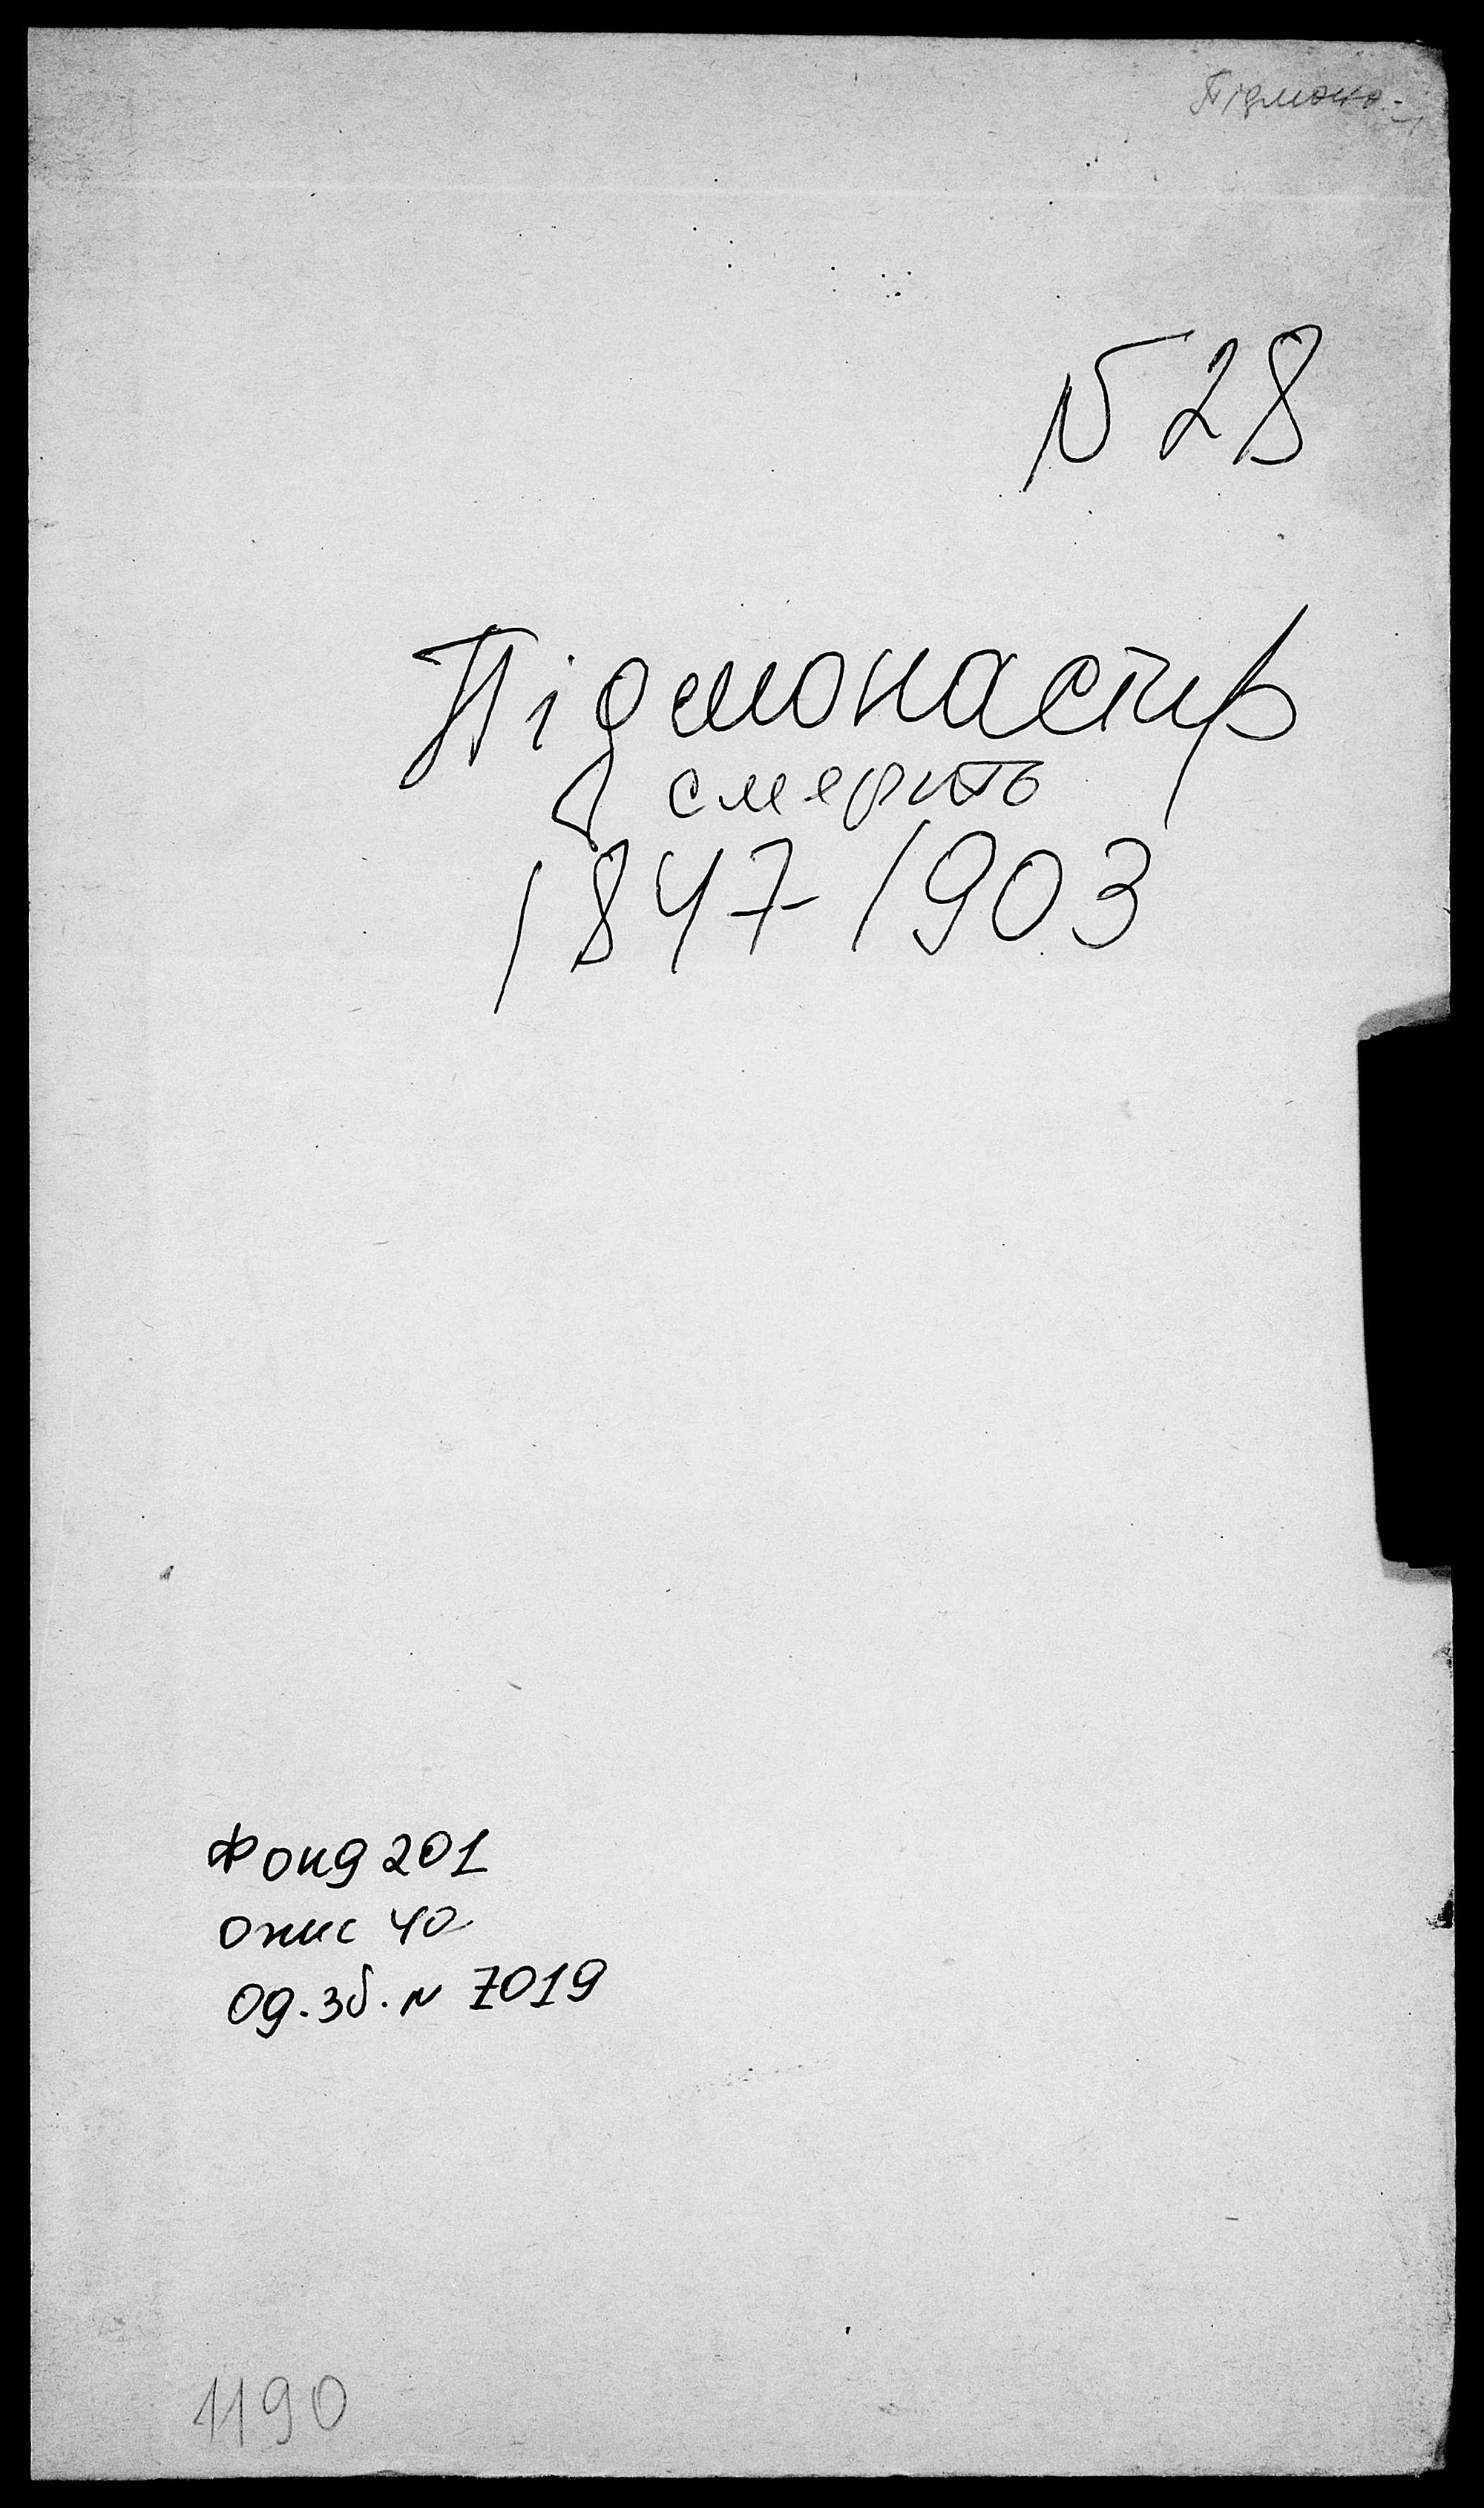 Підмона-
N 28
Підмонастир
смерть
1847-1903
Фонд 201
опис 4а
од. зб. N 7019
1190